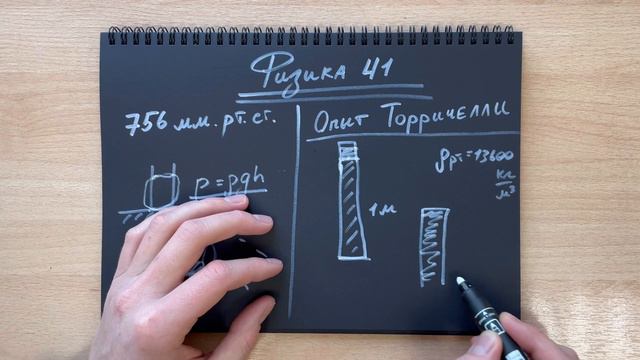 Физика 41
756 мм. рт. ст.
p = ρgh
Опыт Торричелли
ρрт. = 13600
кг
м³
1 м